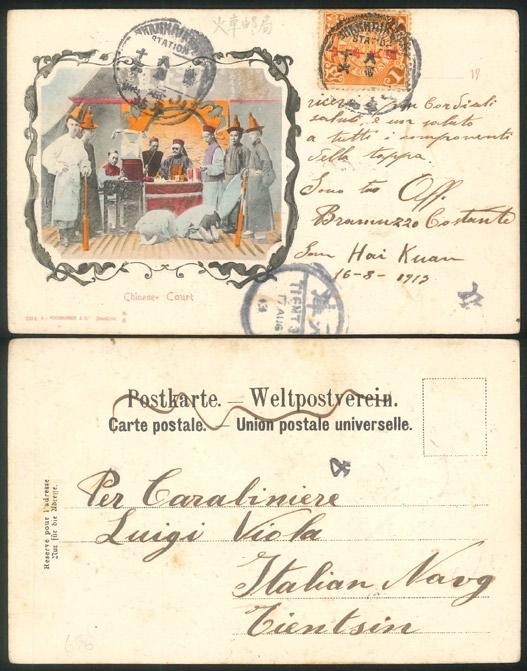 火車郵局
SHANHAIKWAN
STATION
cordiali
saluti, e un saluto
a tutti i componenti
della tappa.
Sono tuo Off.
Bramuzzo Costante
San Hai Kuan
16-8-1913
Chinese Court
TIENTSIN
17 AUG
13
Postkarte. — Weltpostverein.
Carte postale. — Union postale universelle.
Réservé pour l'adresse
Nur für die Adresse.
Per Carabiniere
Luigi Viola
Italian Navy
Tientsin
696